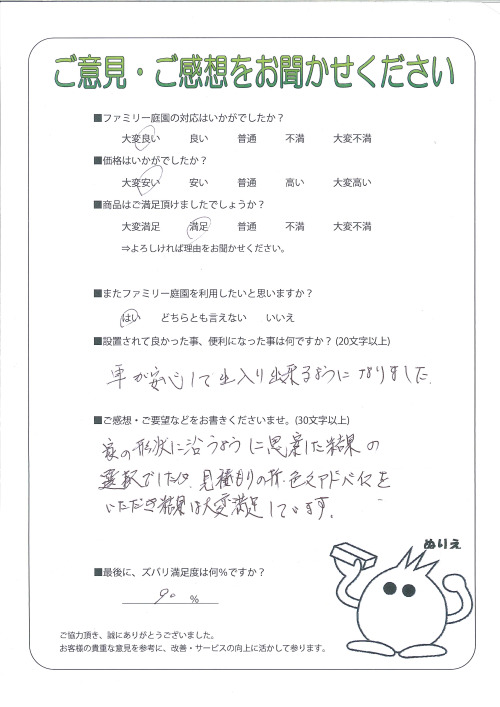 ご意見・ご感想をお聞かせください
■ファミリー庭園の対応はいかがでしたか？
大変良い 良い 普通 不満 大変不満
■価格はいかがでしたか？
大変安い 安い 普通 高い 大変高い
■商品はご満足頂けましたでしょうか？
大変満足 満足 普通 不満 大変不満
⇒よろしければ理由をお聞かせください。
■またファミリー庭園を利用したいと思いますか？
はい どちらとも言えない いいえ
■設置されて良かった事、便利になった事は何ですか？(20文字以上)
車が安心して出入り出来るようになりました。
■ご感想・ご要望などをお書きくださいませ。(30文字以上)
家の形状に沿うように思案した結果の
選択でしたが、見積もりの折、色々アドバイスを
いただき結果は大変満足しています。
ぬりえ
■最後に、ズバリ満足度は何％ですか？
90 %
ご協力頂き、誠にありがとうございました。
お客様の貴重な意見を参考に、改善・サービスの向上に活かして参ります。